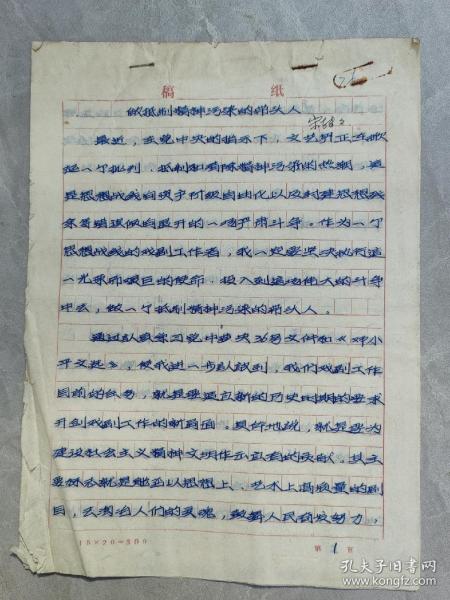 稿 纸
做抵制精神污染的带头人
最近，在党中央的指示下，文艺界正在掀
起一个批判、抵制和清除精神污染的热潮，这
是思想战线自资产阶级自由化以及封建思想残
余等错误倾向展开的一场严肃斗争。作为一个
思想战线的戏剧工作者，我一定要坚决执行这
一光荣而艰巨的使命，投入到这场伟大的斗争
中去，做一个抵制精神污染的带头人。
通过认真学习党中央36号文件和《邓小
平文选》，使我进一步认识到，我们戏剧工作
目前的任务，就是要适应新的历史时期的要求
开创戏剧工作的新局面。具体地说，就是要为
建设社会主义精神文明作出应有的贡献，其主
要标志就是能以思想上、艺术上高质量的剧
目，去陶冶人们的灵魂，鼓舞人民奋发努力，
15×20=300
第 1 页
孔夫子旧书网